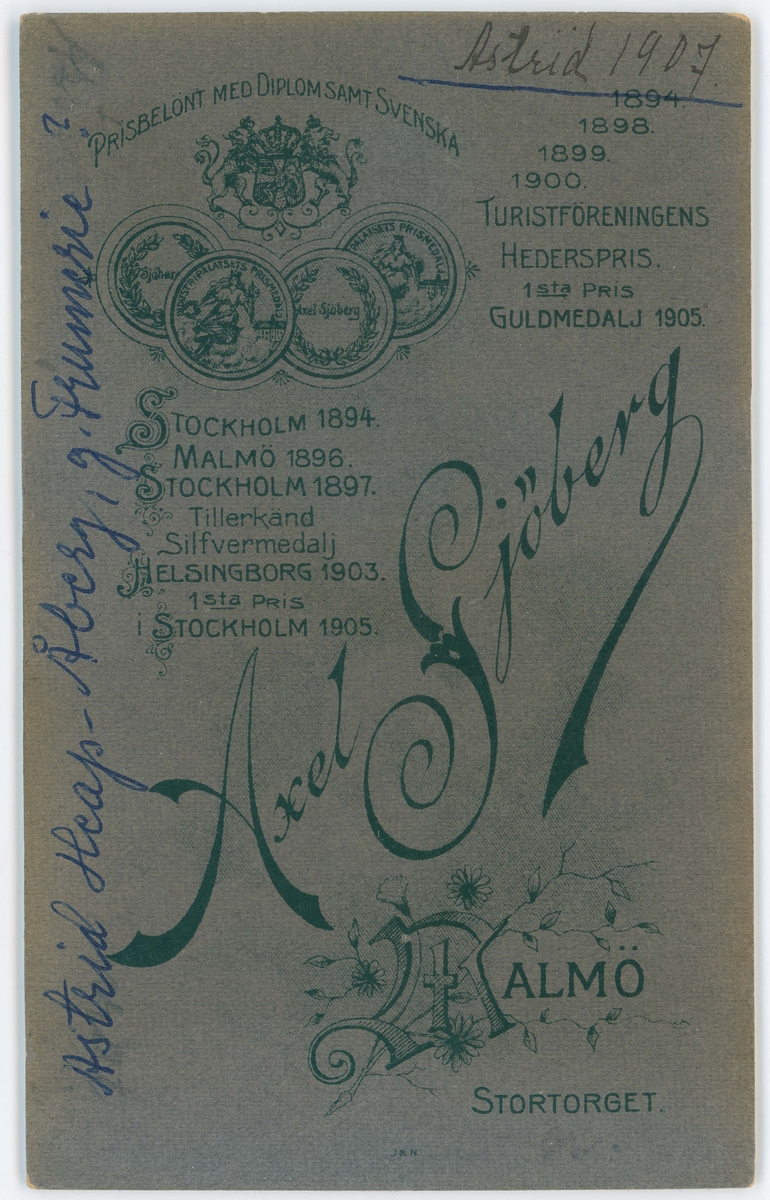 Astrid 1907.
PRISBELÖNT MED DIPLOM SAMT SVENSKA
1894.
1898.
1899.
1900.
TURISTFÖRENINGENS
HEDERSPRIS.
1sta PRIS
GULDMEDALJ 1905.
Axel Sjöberg
STOCKHOLM 1894.
MALMÖ 1896.
STOCKHOLM 1897.
Tillerkänd
Silfvermedalj
HELSINGBORG 1903.
1sta PRIS
i STOCKHOLM 1905.
Axel Sjöberg
MALMÖ
STORTORGET.
J&N
Astrid Heap-Åberg, g. Frumerie?